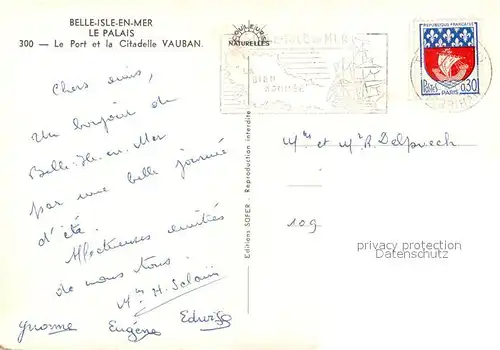 BELLE-ISLE-EN-MER
LE PALAIS
300 — Le Port et la Citadelle VAUBAN.
COULEURS
NATURELLES
REPUBLIQUE FRANÇAISE
POSTES
0,30
PARIS
Chers amis,
Un bonjour de
Belle-Ile-en-Mer
par une belle journée
d'été.
Affectueuses amitiés
de nous tous.
Yvonne Eugène Edwige
Editions SOFER - Reproduction interdite
Mme et Mr R. Delpuech
109
privacy protection
Datenschutz